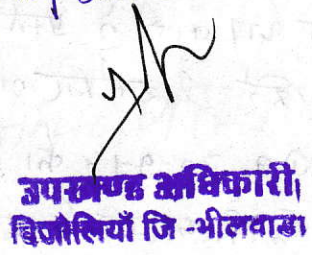 उपखण्ड अधिकारी,
बिजौलियाँ जि -भीलवाडा